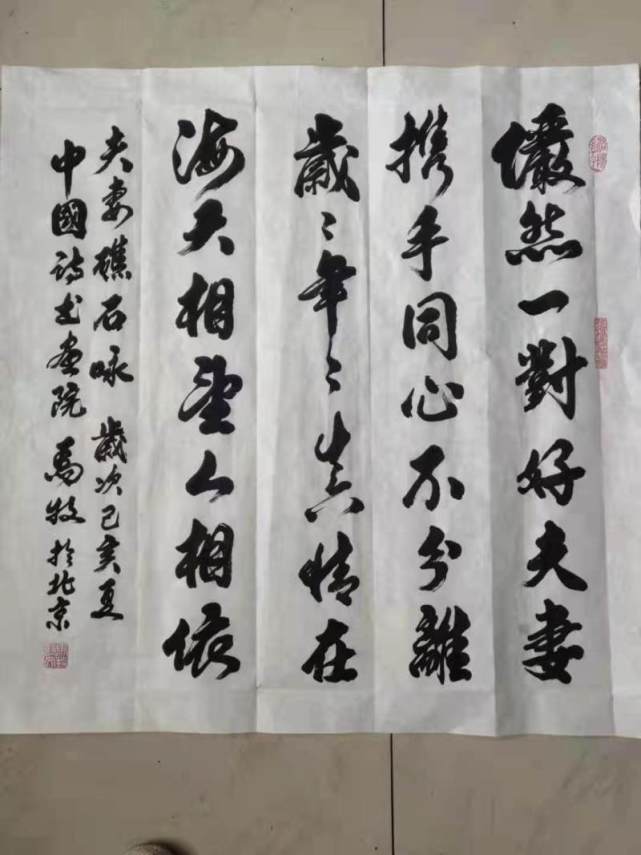 儼然一對好夫妻
携手同心不分離
歲〻年〻真情在
海天相望人相依
夫妻礁石咏 歲次己亥夏
中國詩書畫院 馬牧 於北京